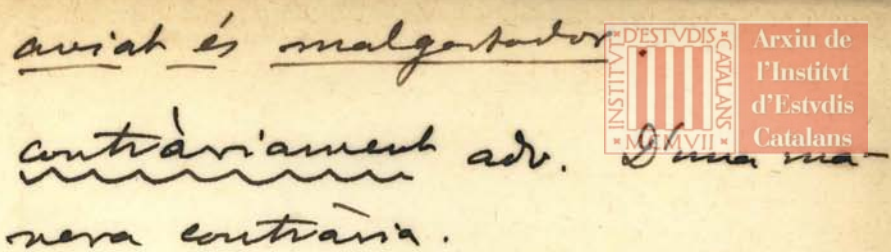 aviat és malgastador.
contràriament adv. D'una ma-
nera contrària.
INSTITVT D'ESTVDIS CATALANS
MCMVII
Arxiu de
l'Institvt
d'Estvdis
Catalans